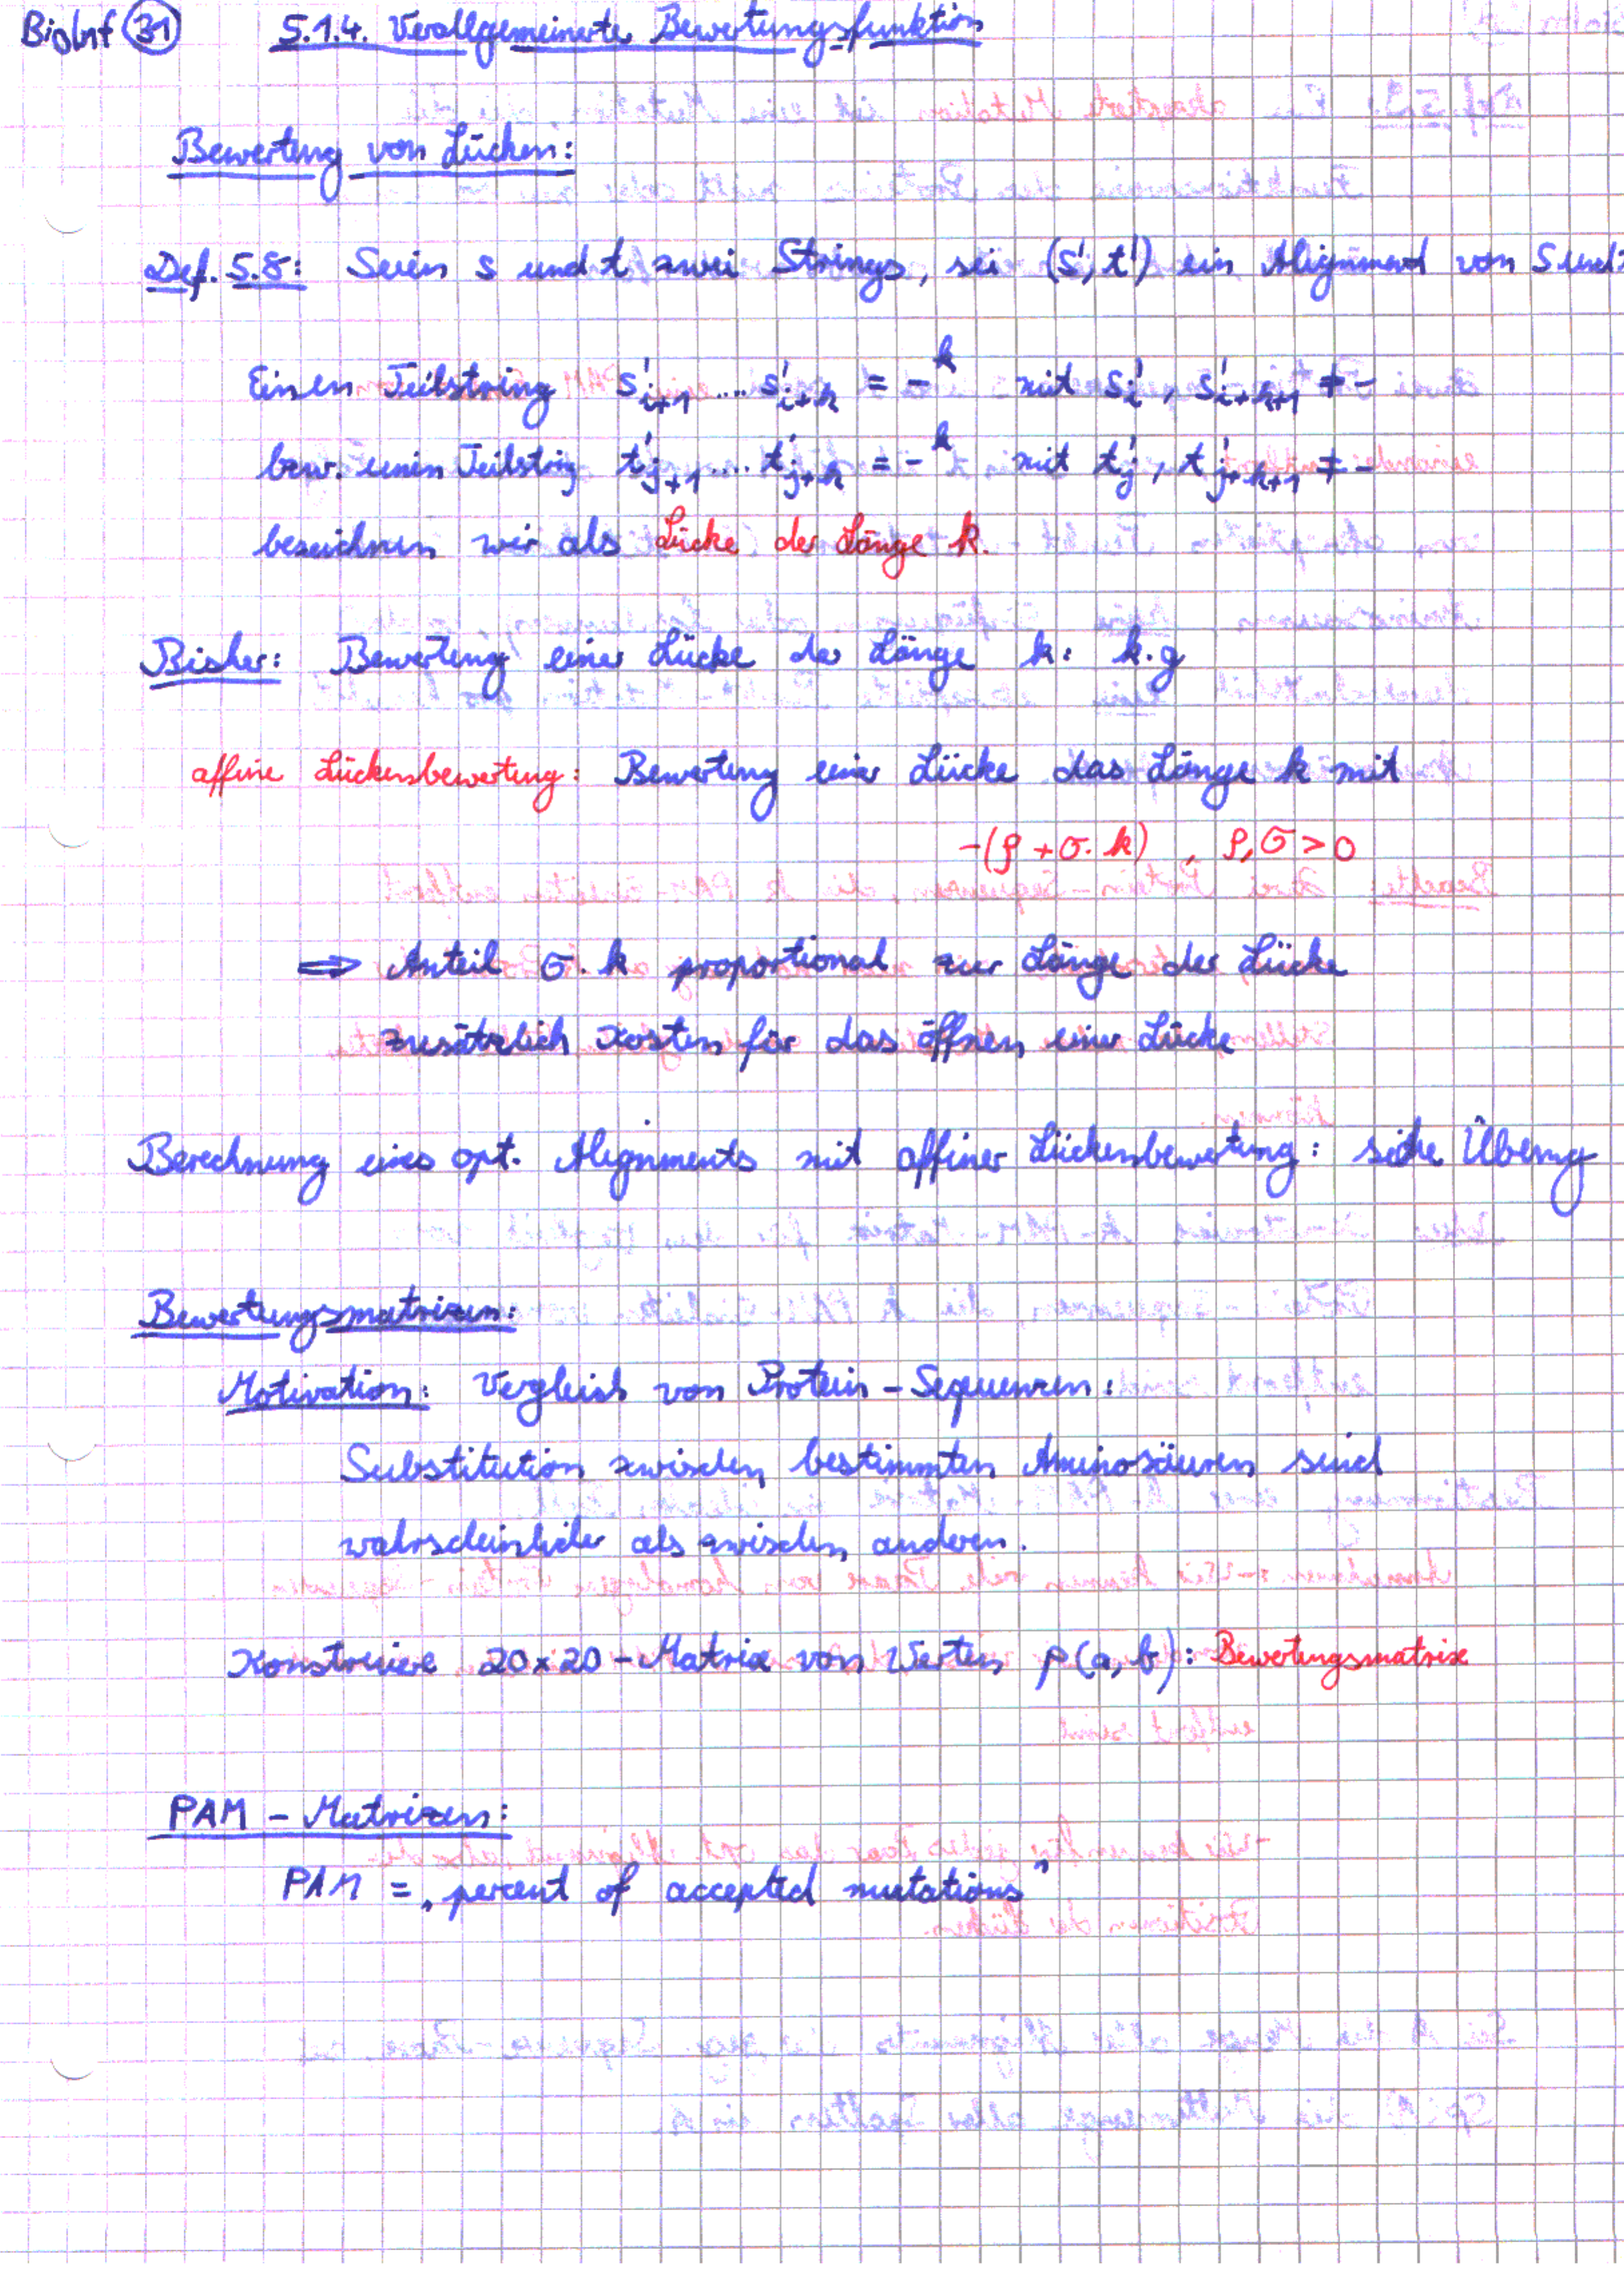 BioInf (31) 5.1.4. Verallgemeinerte Bewertungsfunktion
Bewertung von Lücken:
Def. 5.8: Seien s und t zwei Strings, sei (s', t') ein Alignment von s und t
Einen Teilstring s'_{i+1} .... s'_{i+k} = -^k mit s'_i, s'_{i+k+1} ≠ -
bzw. einen Teilstring t'_{j+1} .... t'_{j+k} = -^k mit t'_j, t'_{j+k+1} ≠ -
bezeichnen wir als Lücke der Länge k.
Bisher: Bewertung einer Lücke der Länge k: k·g
affine Lückenbewertung: Bewertung einer Lücke das Länge k mit
-(ρ + σ·k), ρ, σ > 0
⇒ Anteil σ·k proportional zur Länge der Lücke
zusätzlich Kosten für das öffnen einer Lücke
Berechnung eines opt. Alignments mit affiner Lückenbewertung: siehe Übung
Bewertungsmatrizen:
Motivation: Vergleich von Protein-Sequenzen:
Substitution zwischen bestimmten Aminosäuren sind
wahrscheinlicher als zwischen anderen.
Konstruiere 20×20-Matrix von Werten p(a, b): Bewertungsmatrix
PAM-Matrizen:
PAM = „percent of accepted mutations"